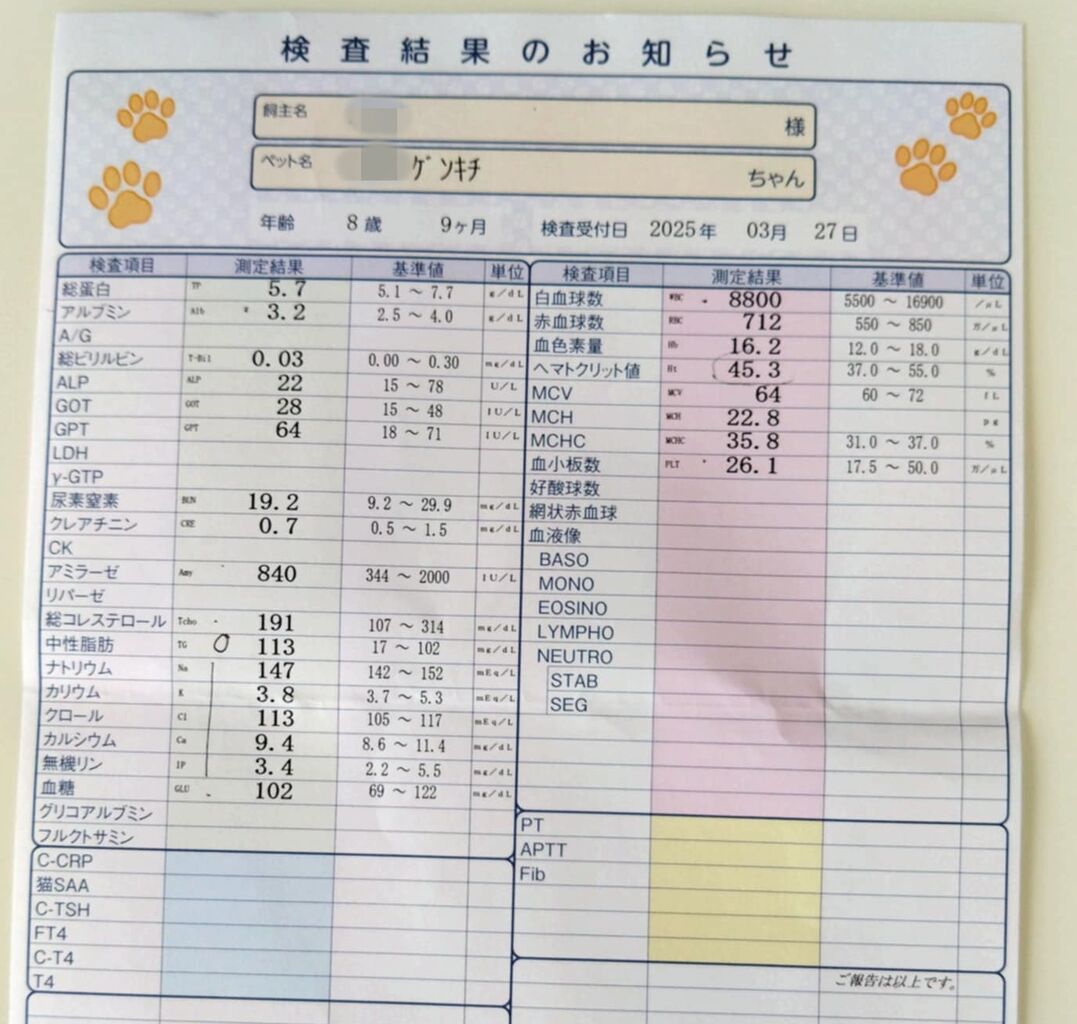 検査結果のお知らせ
飼主名 様
ペット名 ゲンキチ ちゃん
年齢 8歳 9ヶ月 検査受付日 2025年 03月 27日
検査項目 測定結果 基準値 単位
総蛋白 TP 5.7 5.1 ～ 7.7 g/dL
アルブミン Alb 3.2 2.5 ～ 4.0 g/dL
A/G
総ビリルビン T-Bil 0.03 0.00 ～ 0.30 mg/dL
ALP ALP 22 15 ～ 78 U/L
GOT GOT 28 15 ～ 48 IU/L
GPT GPT 64 18 ～ 71 IU/L
LDH
γ-GTP
尿素窒素 BUN 19.2 9.2 ～ 29.9 mg/dL
クレアチニン CRE 0.7 0.5 ～ 1.5 mg/dL
CK
アミラーゼ Amy 840 344 ～ 2000 IU/L
リパーゼ
総コレステロール Tcho 191 107 ～ 314 mg/dL
中性脂肪 TG 113 17 ～ 102 mg/dL
ナトリウム Na 147 142 ～ 152 mEq/L
カリウム K 3.8 3.7 ～ 5.3 mEq/L
クロール Cl 113 105 ～ 117 mEq/L
カルシウム Ca 9.4 8.6 ～ 11.4 mg/dL
無機リン IP 3.4 2.2 ～ 5.5 mg/dL
血糖 GLU 102 69 ～ 122 mg/dL
グリコアルブミン
フルクトサミン
C-CRP
猫SAA
C-TSH
FT4
C-T4
T4
検査項目 測定結果 基準値 単位
白血球数 WBC 8800 5500 ～ 16900 /μL
赤血球数 RBC 712 550 ～ 850 万/μL
血色素量 Hb 16.2 12.0 ～ 18.0 g/dL
ヘマトクリット値 Ht 45.3 37.0 ～ 55.0 %
MCV MCV 64 60 ～ 72 fL
MCH MCH 22.8 pg
MCHC MCHC 35.8 31.0 ～ 37.0 %
血小板数 PLT 26.1 17.5 ～ 50.0 万/μL
好酸球数
網状赤血球
血液像
BASO
MONO
EOSINO
LYMPHO
NEUTRO
STAB
SEG
PT
APTT
Fib
ご報告は以上です。